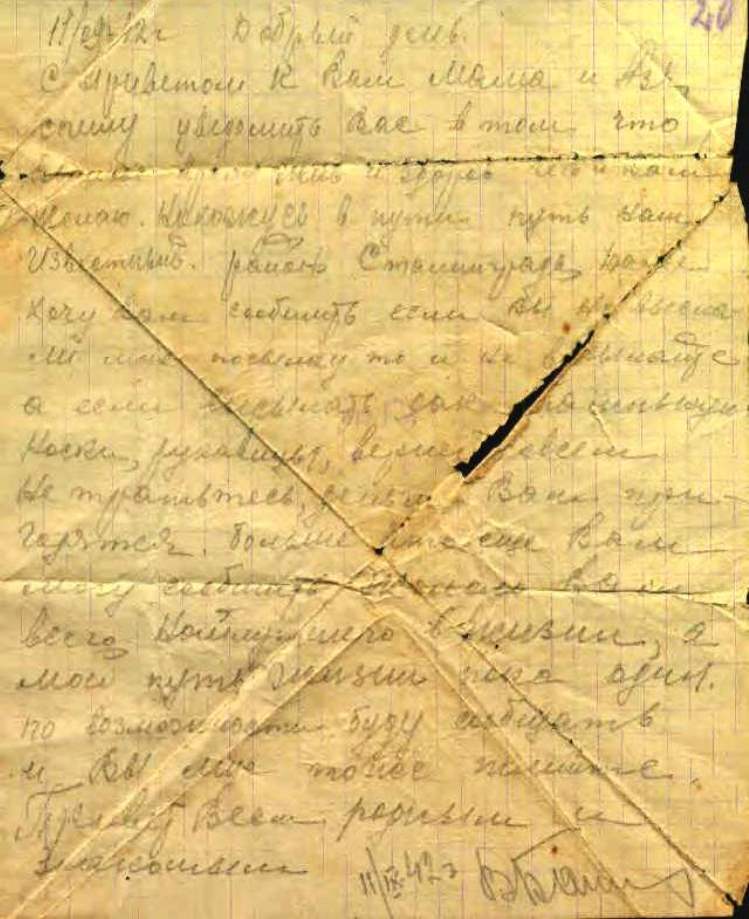 20
Добрый день.
С приветом к Вам Мама и
спешу уведомить Вас в том что
и здоров чего и вам
желаю. Нахожусь в пути путь наш
Известный. район Сталинграда,
хочу Вам сообщить если вы не высла
ли мне посылку то и не высылайте
а если высылать
носки, рукавицы, совсем
не тратьтесь, деньги Вам при-
годятся. Больше что еще Вам
могу сообщить Желаю Вам
всего наилучшего в жизни, а
мой путь жизни пока один.
по возможности буду сообщать
и Вы мне тоже пишите.
Привет Всем родным и
знакомым
11/IX-42г